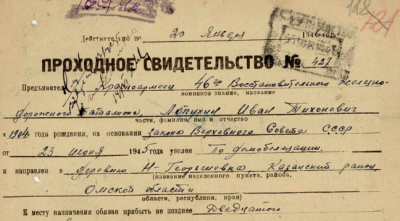 Действительно по 20 Января 1946
ПРОХОДНОЕ СВИДЕТЕЛЬСТВО № 421
Предъявитель Красноармеец 46го Восстановительного железно-
воинское звание, название
дорожного Батальона Лопухин Иван Тихонович
части, фамилия, имя и отчество
1904 года рождения, на основании закона Верховного Совета СССР
от 23 июня 1945 года уволен по демобилизации
и направлен в деревню Н-Георгиевка Казанский район
(название населенного пункта, района,
Омской области
области, республики, края)
К месту назначения обязан прибыть не позднее Двадцатого